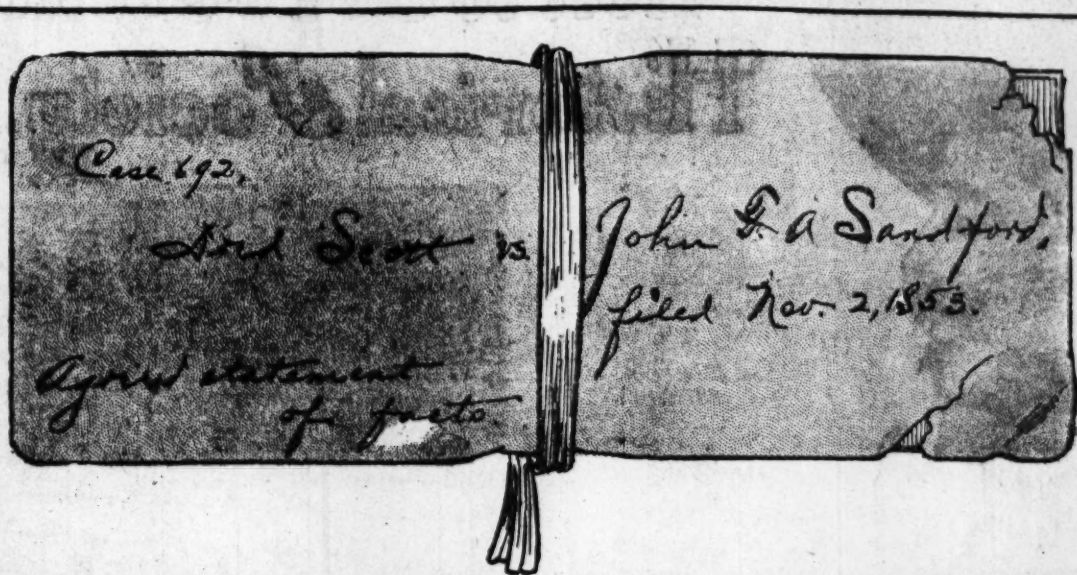 Case 692,
Dred Scott vs. John F. A Sandford,
filed Nov. 2, 1853.
Agreed statement
of facts.